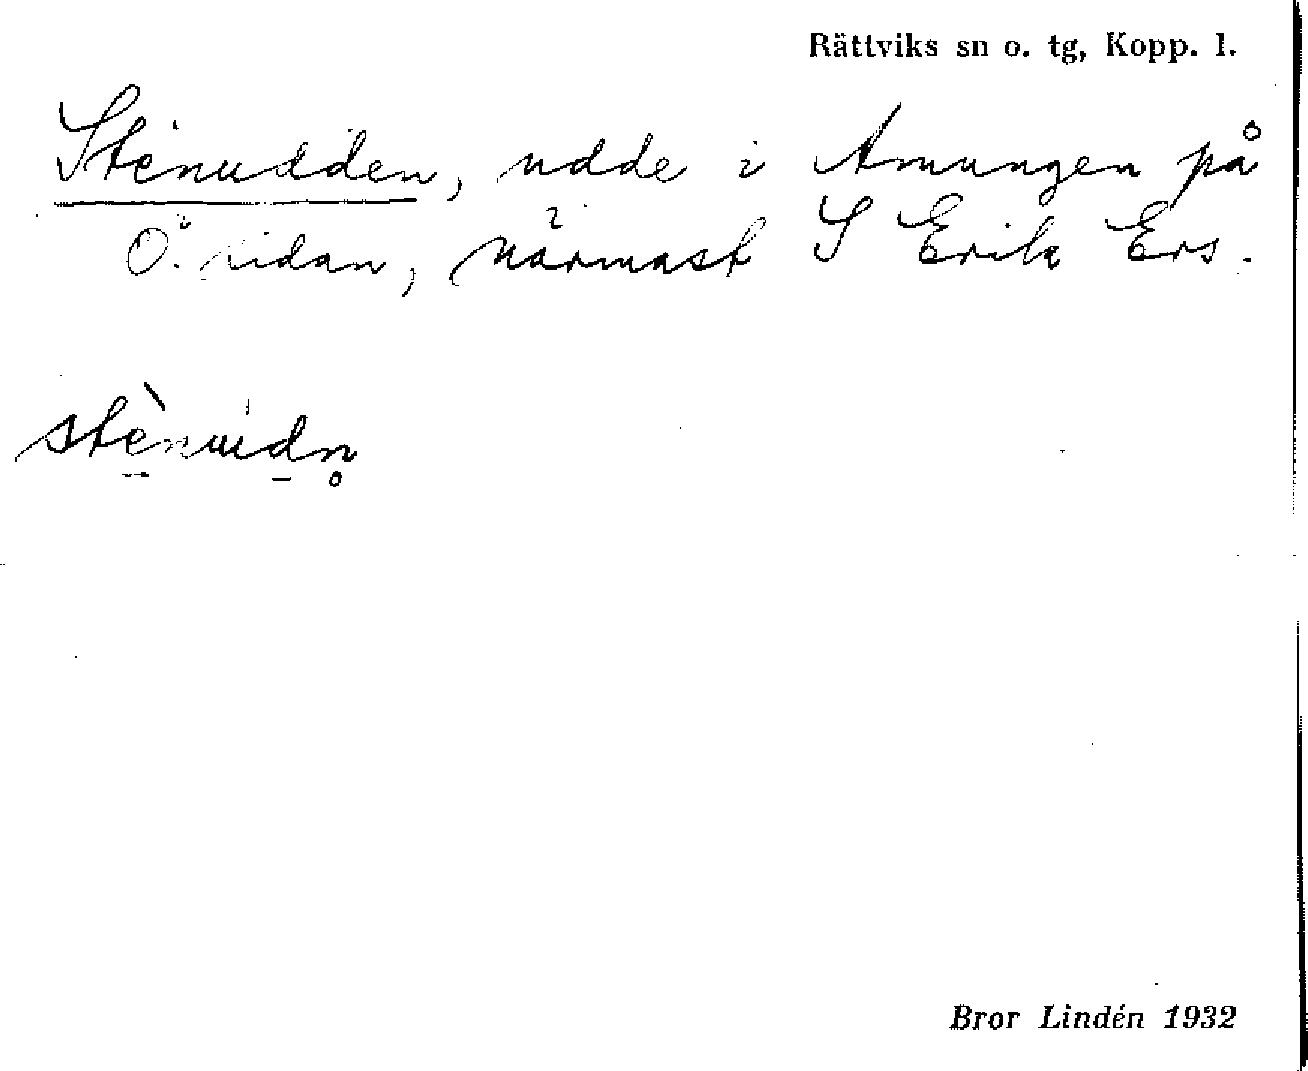 Rättviks sn o. tg, Kopp. l.
Stenudden, udde i Amungen på
Ö. sidan, närmast S Erik Ers.
stènuidn̥
Bror Lindén 1932